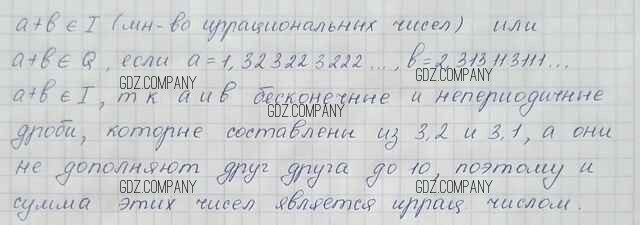 a+b ∈ I (мн-во иррациональных чисел) или
a+b ∈ Q, если a=1,323223222..., b=2,313113111...
GDZ.COMPANY GDZ.COMPANY
a+b ∈ I, т к a и b бесконечные и непериодичные
GDZ.COMPANY
дроби, которые составлены из 3,2 и 3,1, а они
не дополняют друг друга до 10, поэтому и
GDZ.COMPANY GDZ.COMPANY
сумма этих чисел является иррац числом.